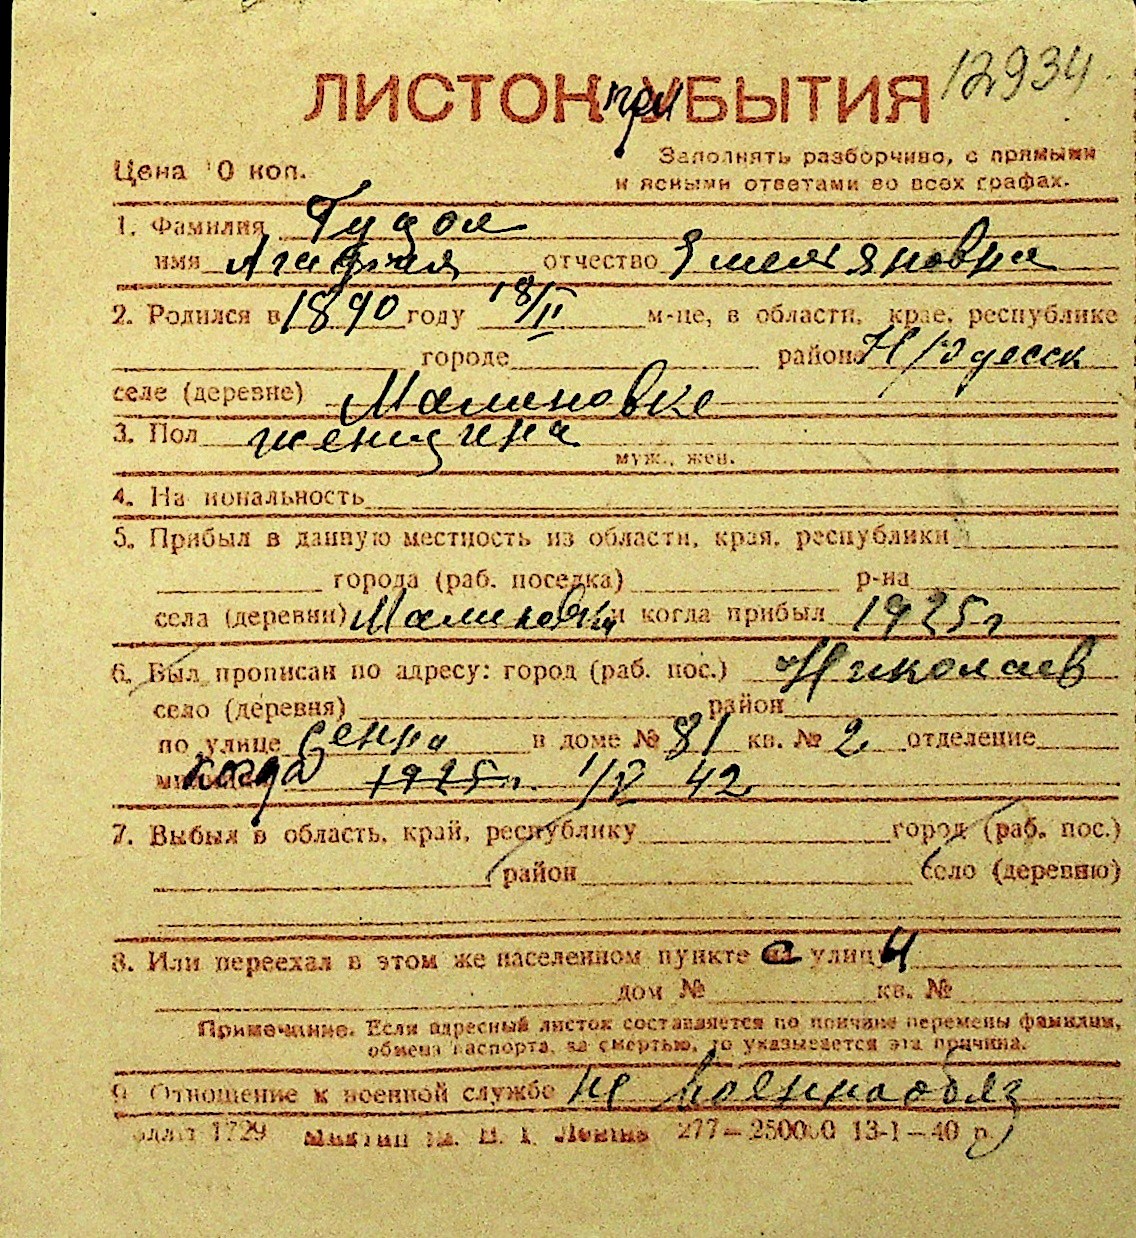 12934
ЛИСТОК при УБЫТИЯ
Цена 10 коп.
Заполнять разборчиво, с прямыми
и ясными ответами во всех графах.
1. Фамилия
имя Агафия отчество Емельяновна
2. Родился в 1890 году 18/II м-це, в области, крае, республике
городе районе Н/Одесск
селе (деревне) Малиновке
3. Пол женщина
муж., жен.
4. Национальность
5. Прибыл в данную местность из области, края, республики
города (раб. поселка) р-на
села (деревни) Малиновки и когда прибыл 1925 г
6. Был прописан по адресу: город (раб. пос.) Николаев
село (деревня) район
по улице в доме № 81 кв. № 2 отделение
когда 1925 г. 1/V 42
7. Выбыл в область, край, республику город (раб. пос.)
район село (деревню)
8. Или переехал в этом же населенном пункте с улицы
дом № кв. №
Примечание. Если адресный листок составляется по причине перемены фамилии,
обмена паспорта, за смертью, то указывается эта причина.
9. Отношение к военной службе не военнообяз
1729 277—250000 13-1—40 р.